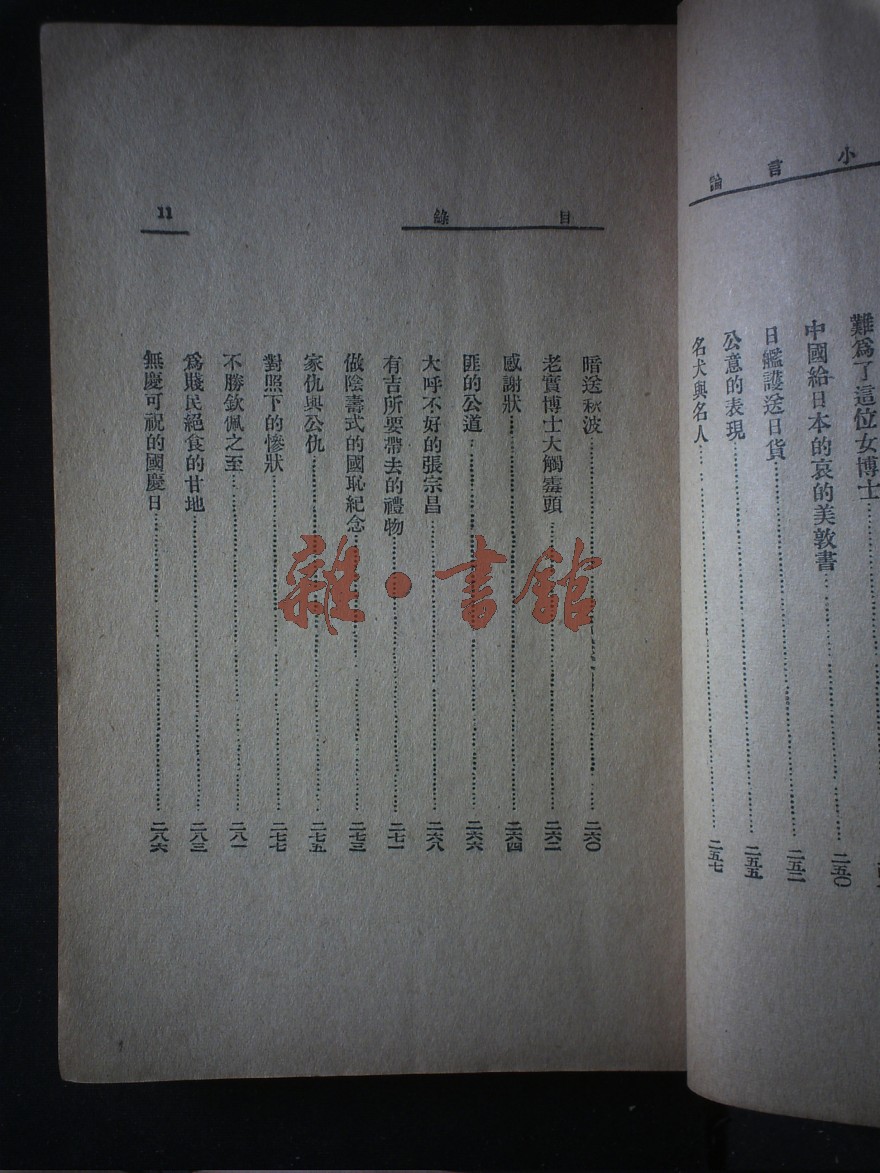 小言論
難為了這位女博士
中國給日本的哀的美敦書 二五〇
日艦護送日貨 二五二
公意的表現 二五五
名犬與名人 二五七
目錄
11
暗送秋波 二六〇
老實博士大觸霉頭 二六二
感謝狀 二六四
匪的公道 二六六
大呼不好的張宗昌 二六八
有吉所要帶去的禮物 二七一
做陰壽式的國恥紀念 二七三
家仇與公仇 二七五
對照下的慘狀 二七七
不勝欽佩之至 二八一
為賤民絕食的甘地 二八三
無慶可祝的國慶日 二八六
雜·書館